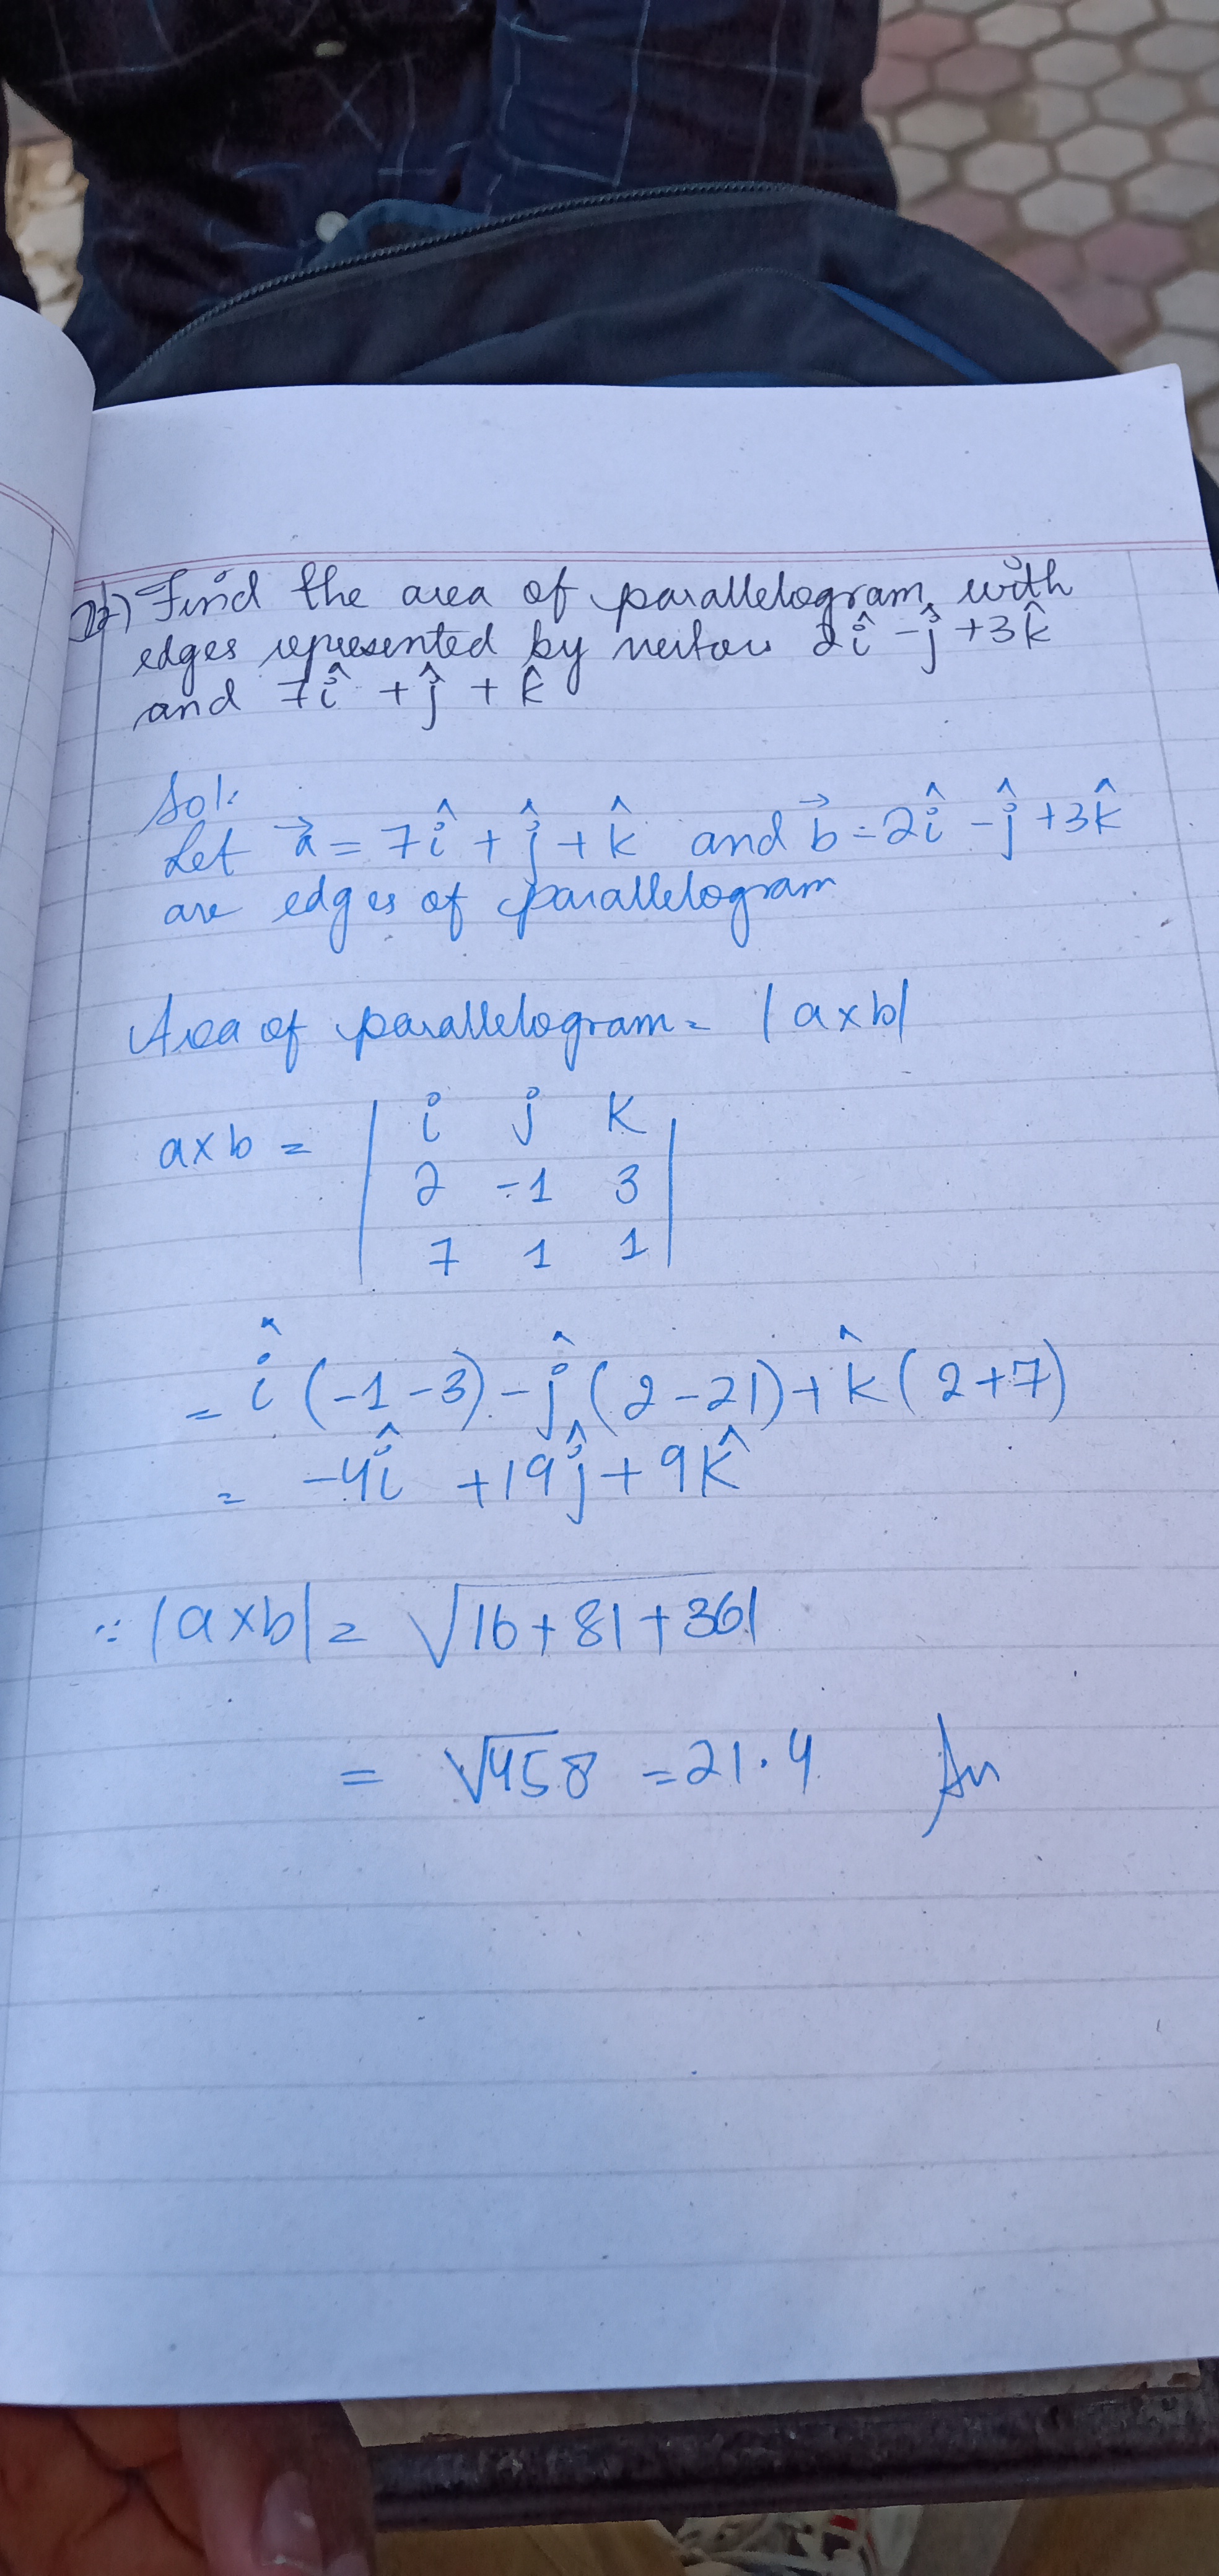 22) Find the area of parallelogram with
edges represented by vector 2î - ĵ + 3k̂
and 7î + ĵ + k̂
Sol:
Let a⃗ = 7î + ĵ + k̂ and b⃗ = 2î - ĵ + 3k̂
are edges of parallelogram
Area of parallelogram = |a×b|
a×b = | i j k |
| 2 -1 3 |
| 7 1 1 |
= î (-1-3) - ĵ (2-21) + k̂ (2+7)
= -4î + 19ĵ + 9k̂
∵ |a×b| = √16+81+361
= √458 = 21.4 An